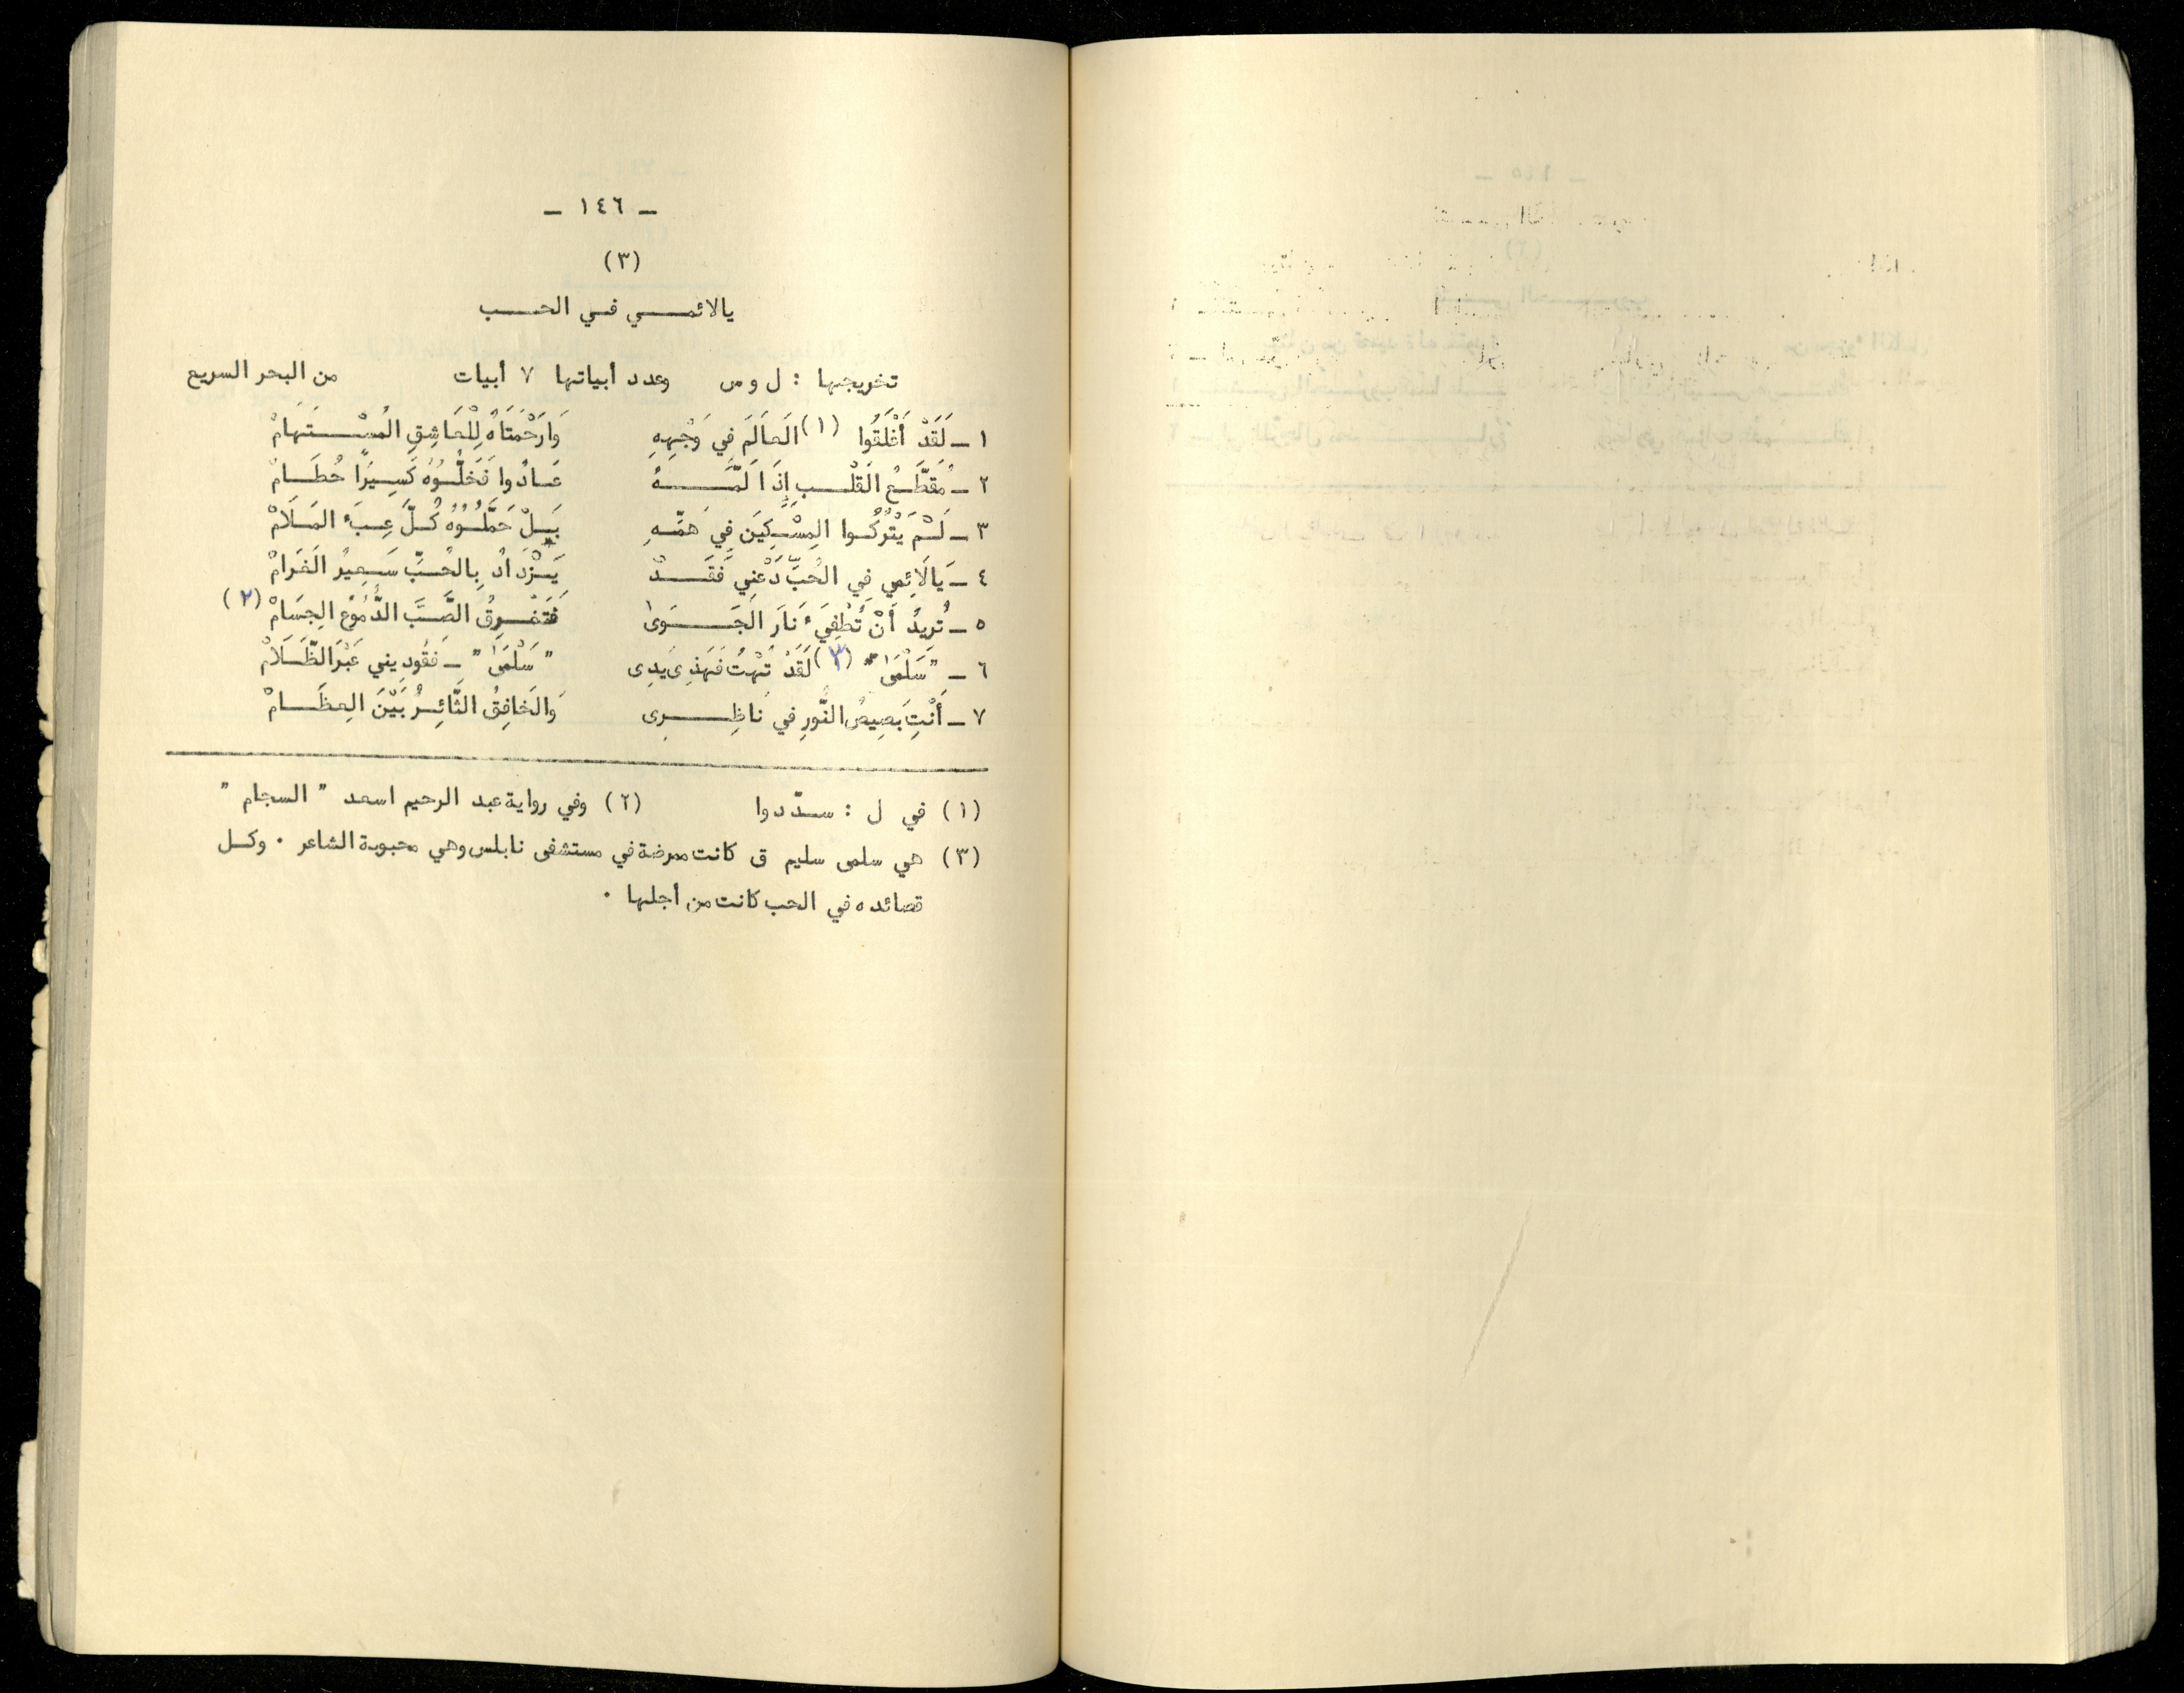 – ١٤٦ –
(٣)
يالائمي في الحب
تخريجها : ل وس وعدد أبياتها ٧ أبيات من البحر السريع
١ – لَقَدْ أَغْلَقُوا (١) العَالَمَ فِي وَجْهِهِ وَارَحْمَتَاهُ لِلْعَاشِقِ المُسْتَهَامْ
٢ – مُقَطَّعُ القَلْبِ إِذَا لَمَّهُ عَادُوا فَخَلُّوُهُ كَسِيَرًا حُطَامْ
٣ – لَمْ يَتْرُكُوا المِسْكِيَن فِي هَمّهِ بَلْ حَمَّلُوُهُ كُلَّ عِبَءِ المَلَامْ
٤ – يَالَائِمِي فِي الحُبَّ دَعْنِي فَقَدْ يَزْدَادُ بِالحُبِّ سَعِيرُ الغَرَامْ
٥ – تُرِيدُ أَنْ تُطْفِيَء نَارَ الجَوَىٰ فَتَغْرِقُ الصَّبَّ الدُّمُوُع الجِسَامْ (٢)
٦ – "سَلْمَىٰ" (٣) لَقَدْ تُهْتُ فَهَذِى يَدِى "سَلْمَىٰ" – فَقُودِيني عَبْرَ الظَّلَامْ
٧ – أَنْتِ بَصِيصُ النُّورِ في نَاظِرِى وَالخَافِقُ الثَّائِرُ بَيْنَ العِظَامْ
(١) في ل : سدّدوا (٢) وفي رواية عبد الرحيم اسعد " السجام "
(٣) هي سلمى سليم ق كانت ممرضة في مستشفى نابلس وهي محبوبة الشاعر . وكل
قصائده في الحب كانت من أجلها .